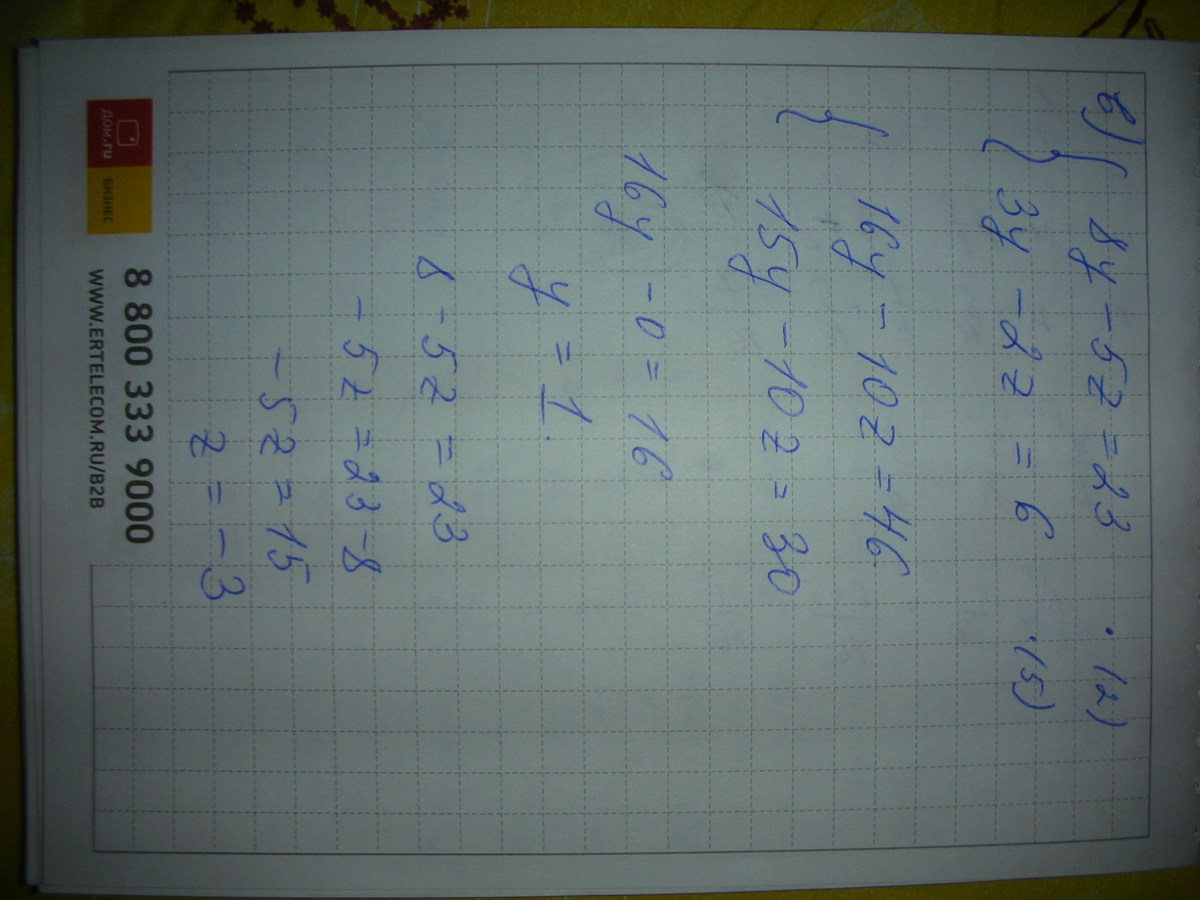 в) { 8y - 5z = 23 · (2)
{ 3y - 2z = 6 · (5)
{ 16y - 10z = 46
15y - 10z = 30
16y - 0 = 16
y = 1.
8 - 5z = 23
- 5z = 23 - 8
- 5z = 15
z = - 3
ДОМ.ru
БИЗНЕС
8 800 333 9000
WWW.ERTELECOM.RU/B2B